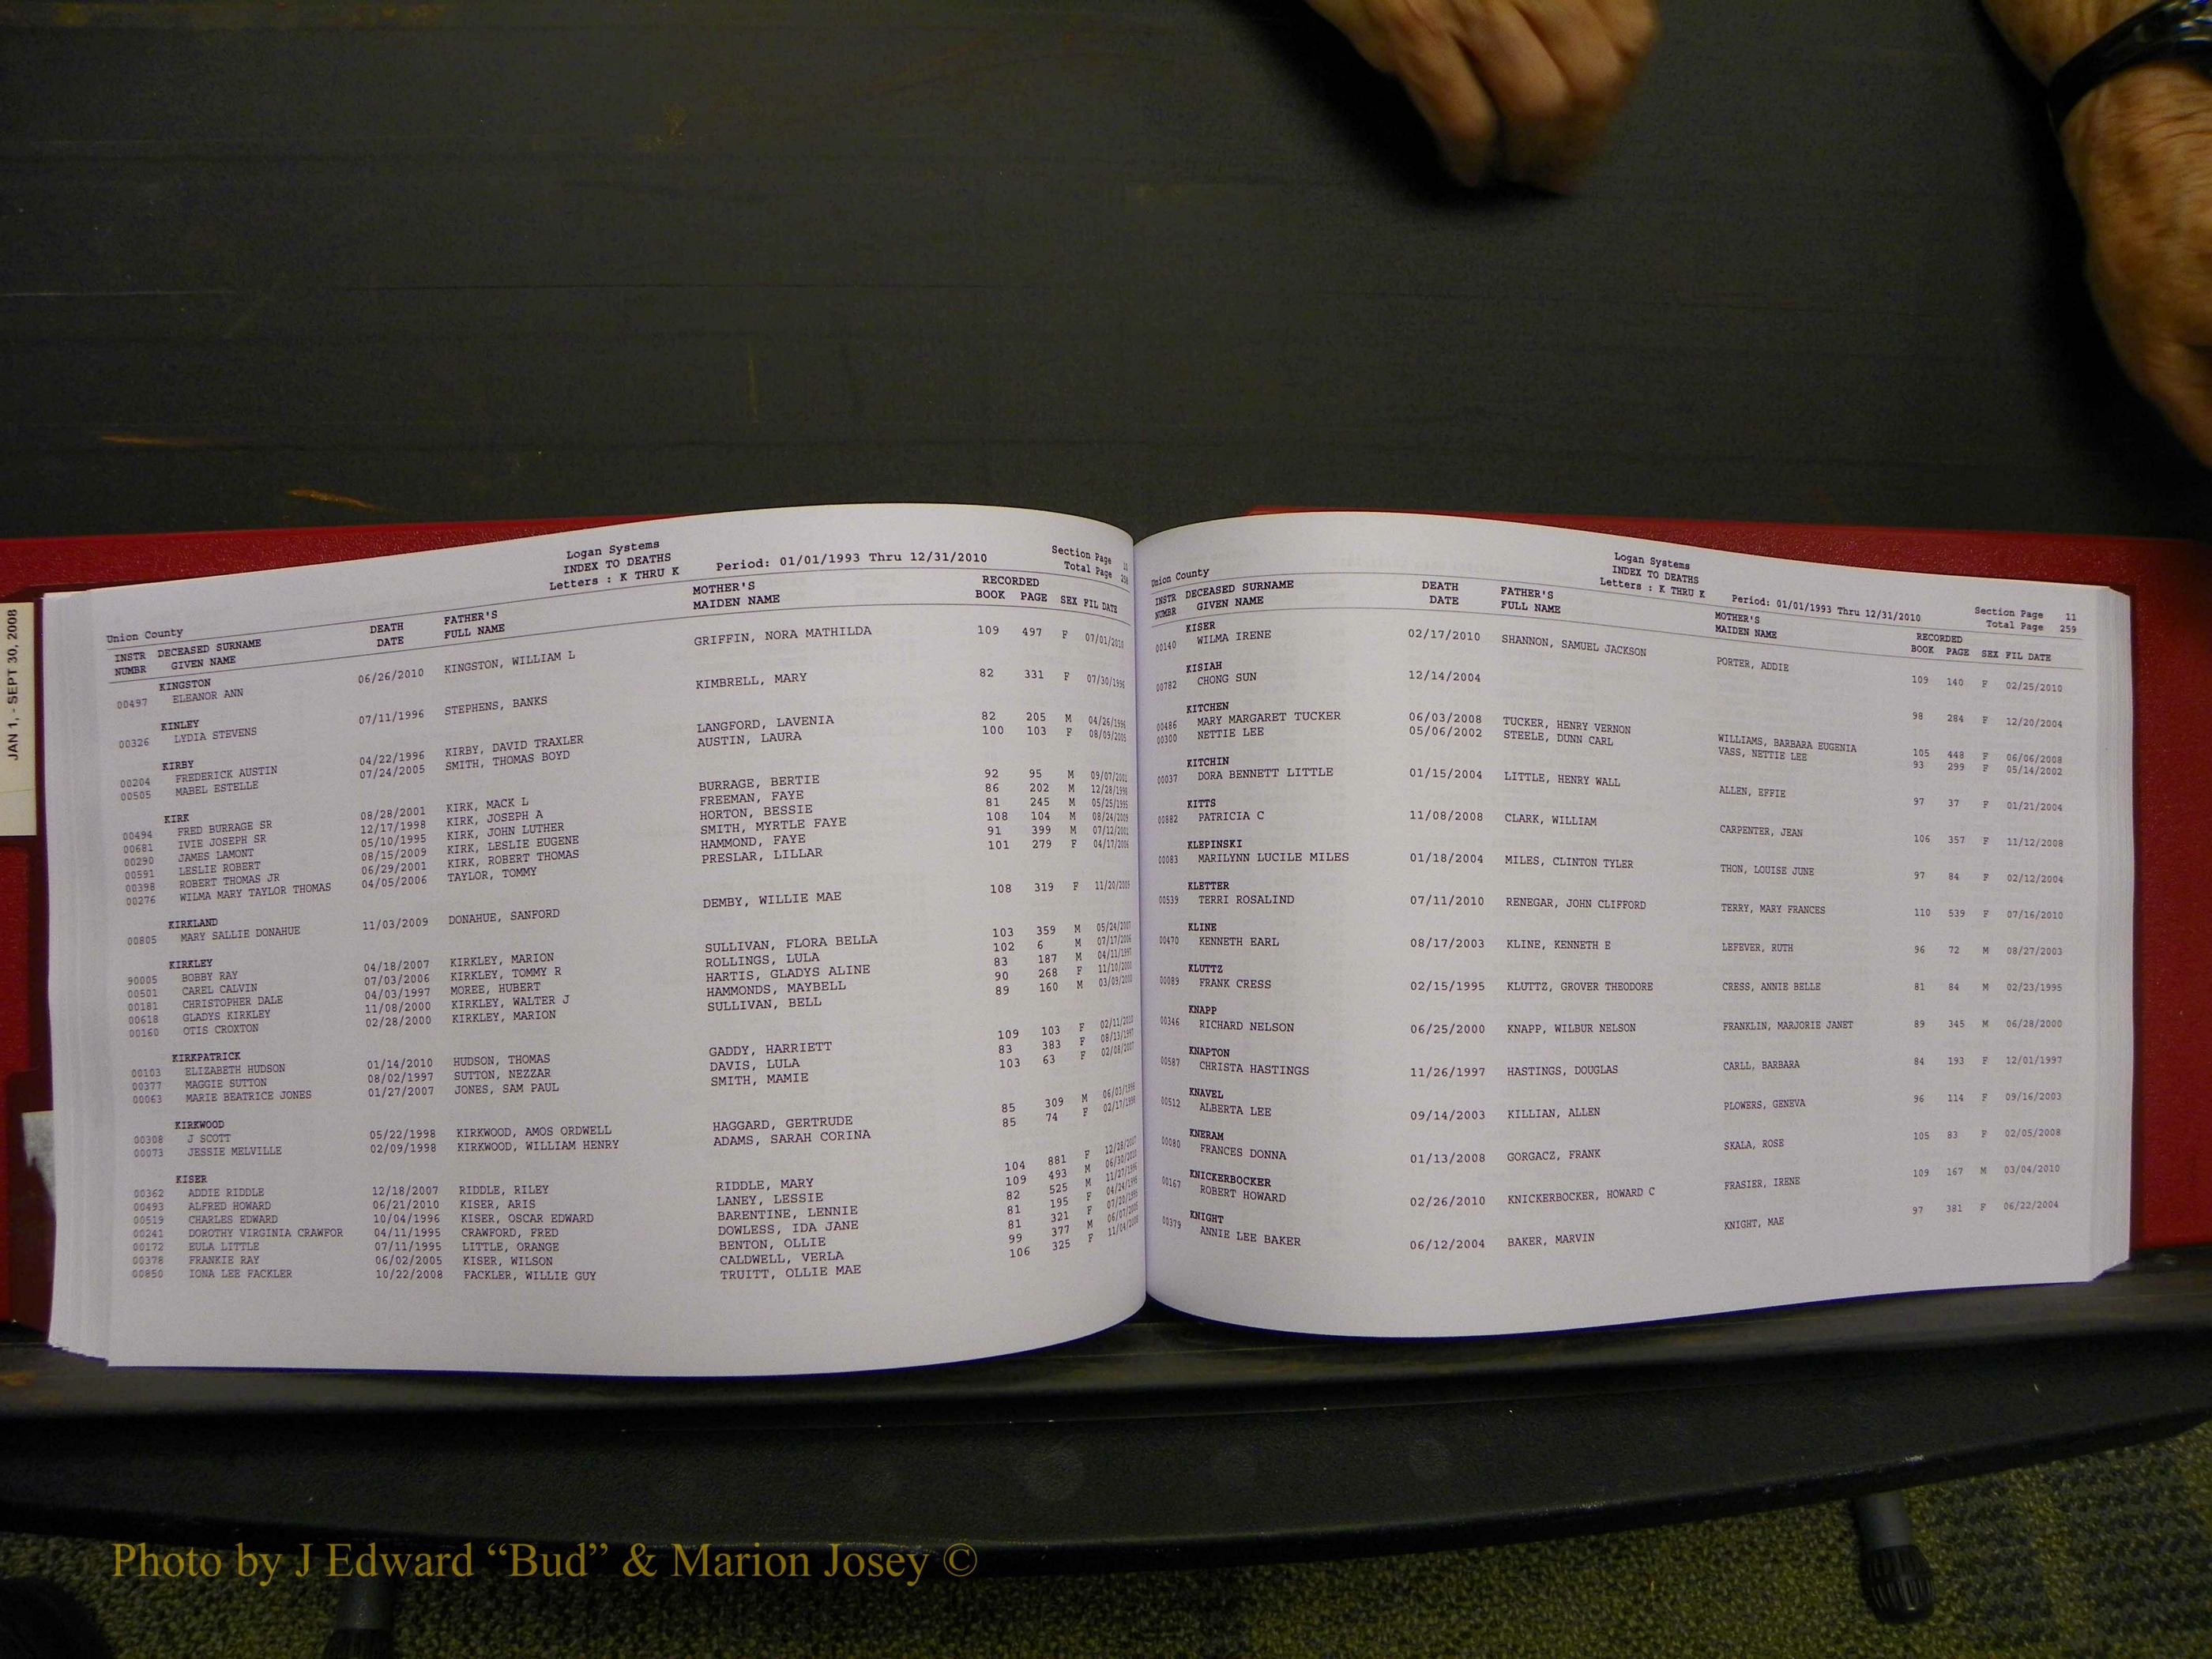 JAN 1, - SEPT 30, 2008
Logan Systems
INDEX TO DEATHS
Letters : K THRU K Period: 01/01/1993 Thru 12/31/2010
Section Page 11
Total Page 258
Union County
INSTR DECEASED SURNAME DEATH FATHER'S MOTHER'S RECORDED
NUMBR GIVEN NAME DATE FULL NAME MAIDEN NAME BOOK PAGE SEX FIL DATE
KINGSTON
00497 ELEANOR ANN 06/26/2010 KINGSTON, WILLIAM L GRIFFIN, NORA MATHILDA 109 497 F 07/01/2010
KINLEY
00326 LYDIA STEVENS 07/11/1996 STEPHENS, BANKS KIMBRELL, MARY 82 331 F 07/30/1996
KIRBY
00204 FREDERICK AUSTIN 04/22/1996 KIRBY, DAVID TRAXLER LANGFORD, LAVENIA 82 205 M 04/26/1996
00505 MABEL ESTELLE 07/24/2005 SMITH, THOMAS BOYD AUSTIN, LAURA 100 103 F 08/09/2005
KIRK
00494 FRED BURRAGE SR 08/28/2001 KIRK, MACK L BURRAGE, BERTIE 92 95 M 09/07/2001
00681 IVIE JOSEPH SR 12/17/1998 KIRK, JOSEPH A FREEMAN, FAYE 86 202 M 12/28/1998
00290 JAMES LAMONT 05/10/1995 KIRK, JOHN LUTHER HORTON, BESSIE 81 245 M 05/25/1995
00591 LESLIE ROBERT 08/15/2009 KIRK, LESLIE EUGENE SMITH, MYRTLE FAYE 108 104 M 08/24/2009
00398 ROBERT THOMAS JR 06/29/2001 KIRK, ROBERT THOMAS HAMMOND, FAYE 91 399 M 07/12/2001
00276 WILMA MARY TAYLOR THOMAS 04/05/2006 TAYLOR, TOMMY PRESLAR, LILLAR 101 279 F 04/17/2006
KIRKLAND
00805 MARY SALLIE DONAHUE 11/03/2009 DONAHUE, SANFORD DEMBY, WILLIE MAE 108 319 F 11/20/2009
KIRKLEY
90005 BOBBY RAY 04/18/2007 KIRKLEY, MARION SULLIVAN, FLORA BELLA 103 359 M 05/24/2007
00501 CAREL CALVIN 07/03/2006 KIRKLEY, TOMMY R ROLLINGS, LULA 102 6 M 07/17/2006
00181 CHRISTOPHER DALE 04/03/1997 MOREE, HUBERT HARTIS, GLADYS ALINE 83 187 M 04/11/1997
00618 GLADYS KIRKLEY 11/08/2000 KIRKLEY, WALTER J HAMMONDS, MAYBELL 90 268 F 11/10/2000
00160 OTIS CROXTON 02/28/2000 KIRKLEY, MARION SULLIVAN, BELL 89 160 M 03/09/2000
KIRKPATRICK
00103 ELIZABETH HUDSON 01/14/2010 HUDSON, THOMAS GADDY, HARRIETT 109 103 F 02/11/2010
00377 MAGGIE SUTTON 08/02/1997 SUTTON, NEZZAR DAVIS, LULA 83 383 F 08/13/1997
00063 MARIE BEATRICE JONES 01/27/2007 JONES, SAM PAUL SMITH, MAMIE 103 63 F 02/08/2007
KIRKWOOD
00308 J SCOTT 05/22/1998 KIRKWOOD, AMOS ORDWELL HAGGARD, GERTRUDE 85 309 M 06/03/1998
00073 JESSIE MELVILLE 02/09/1998 KIRKWOOD, WILLIAM HENRY ADAMS, SARAH CORINA 85 74 F 02/17/1998
KISER
00362 ADDIE RIDDLE 12/18/2007 RIDDLE, RILEY RIDDLE, MARY 104 881 F 12/28/2007
00493 ALFRED HOWARD 06/21/2010 KISER, ARIS LANEY, LESSIE 109 493 M 06/30/2010
00519 CHARLES EDWARD 10/04/1996 KISER, OSCAR EDWARD BARENTINE, LENNIE 82 525 M 11/27/1996
00241 DOROTHY VIRGINIA CRAWFOR 04/11/1995 CRAWFORD, FRED DOWLESS, IDA JANE 81 195 F 04/24/1995
00172 EULA LITTLE 07/11/1995 LITTLE, ORANGE BENTON, OLLIE 81 321 F 07/20/1995
00378 FRANKIE RAY 06/02/2005 KISER, WILSON CALDWELL, VERLA 99 377 M 06/07/2005
00850 IONA LEE FACKLER 10/22/2008 FACKLER, WILLIE GUY TRUITT, OLLIE MAE 106 325 F 11/04/2008
Logan Systems
INDEX TO DEATHS
Letters : K THRU K Period: 01/01/1993 Thru 12/31/2010
Section Page 11
Total Page 259
Union County
INSTR DECEASED SURNAME DEATH FATHER'S MOTHER'S RECORDED
NUMBR GIVEN NAME DATE FULL NAME MAIDEN NAME BOOK PAGE SEX FIL DATE
KISER
00140 WILMA IRENE 02/17/2010 SHANNON, SAMUEL JACKSON PORTER, ADDIE 109 140 F 02/25/2010
KISIAH
00782 CHONG SUN 12/14/2004 98 284 F 12/20/2004
KITCHEN
00486 MARY MARGARET TUCKER 06/03/2008 TUCKER, HENRY VERNON WILLIAMS, BARBARA EUGENIA 105 448 F 06/06/2008
00300 NETTIE LEE 05/06/2002 STEELE, DUNN CARL VASS, NETTIE LEE 93 299 F 05/14/2002
KITCHIN
00037 DORA BENNETT LITTLE 01/15/2004 LITTLE, HENRY WALL ALLEN, EFFIE 97 37 F 01/21/2004
KITTS
00882 PATRICIA C 11/08/2008 CLARK, WILLIAM CARPENTER, JEAN 106 357 F 11/12/2008
KLEPINSKI
00083 MARILYNN LUCILE MILES 01/18/2004 MILES, CLINTON TYLER THON, LOUISE JUNE 97 84 F 02/12/2004
KLETTER
00539 TERRI ROSALIND 07/11/2010 RENEGAR, JOHN CLIFFORD TERRY, MARY FRANCES 110 539 F 07/16/2010
KLINE
00470 KENNETH EARL 08/17/2003 KLINE, KENNETH E LEFEVER, RUTH 96 72 M 08/27/2003
KLUTTZ
00089 FRANK CRESS 02/15/1995 KLUTTZ, GROVER THEODORE CRESS, ANNIE BELLE 81 84 M 02/23/1995
KNAPP
00346 RICHARD NELSON 06/25/2000 KNAPP, WILBUR NELSON FRANKLIN, MARJORIE JANET 89 345 M 06/28/2000
KNAPTON
00587 CHRISTA HASTINGS 11/26/1997 HASTINGS, DOUGLAS CARLL, BARBARA 84 193 F 12/01/1997
KNAVEL
00512 ALBERTA LEE 09/14/2003 KILLIAN, ALLEN PLOWERS, GENEVA 96 114 F 09/16/2003
KNERAM
00080 FRANCES DONNA 01/13/2008 GORGACZ, FRANK SKALA, ROSE 105 83 F 02/05/2008
KNICKERBOCKER
00167 ROBERT HOWARD 02/26/2010 KNICKERBOCKER, HOWARD C FRASIER, IRENE 109 167 M 03/04/2010
KNIGHT
00379 ANNIE LEE BAKER 06/12/2004 BAKER, MARVIN KNIGHT, MAE 97 381 F 06/22/2004
Photo by J Edward “Bud” & Marion Josey ©